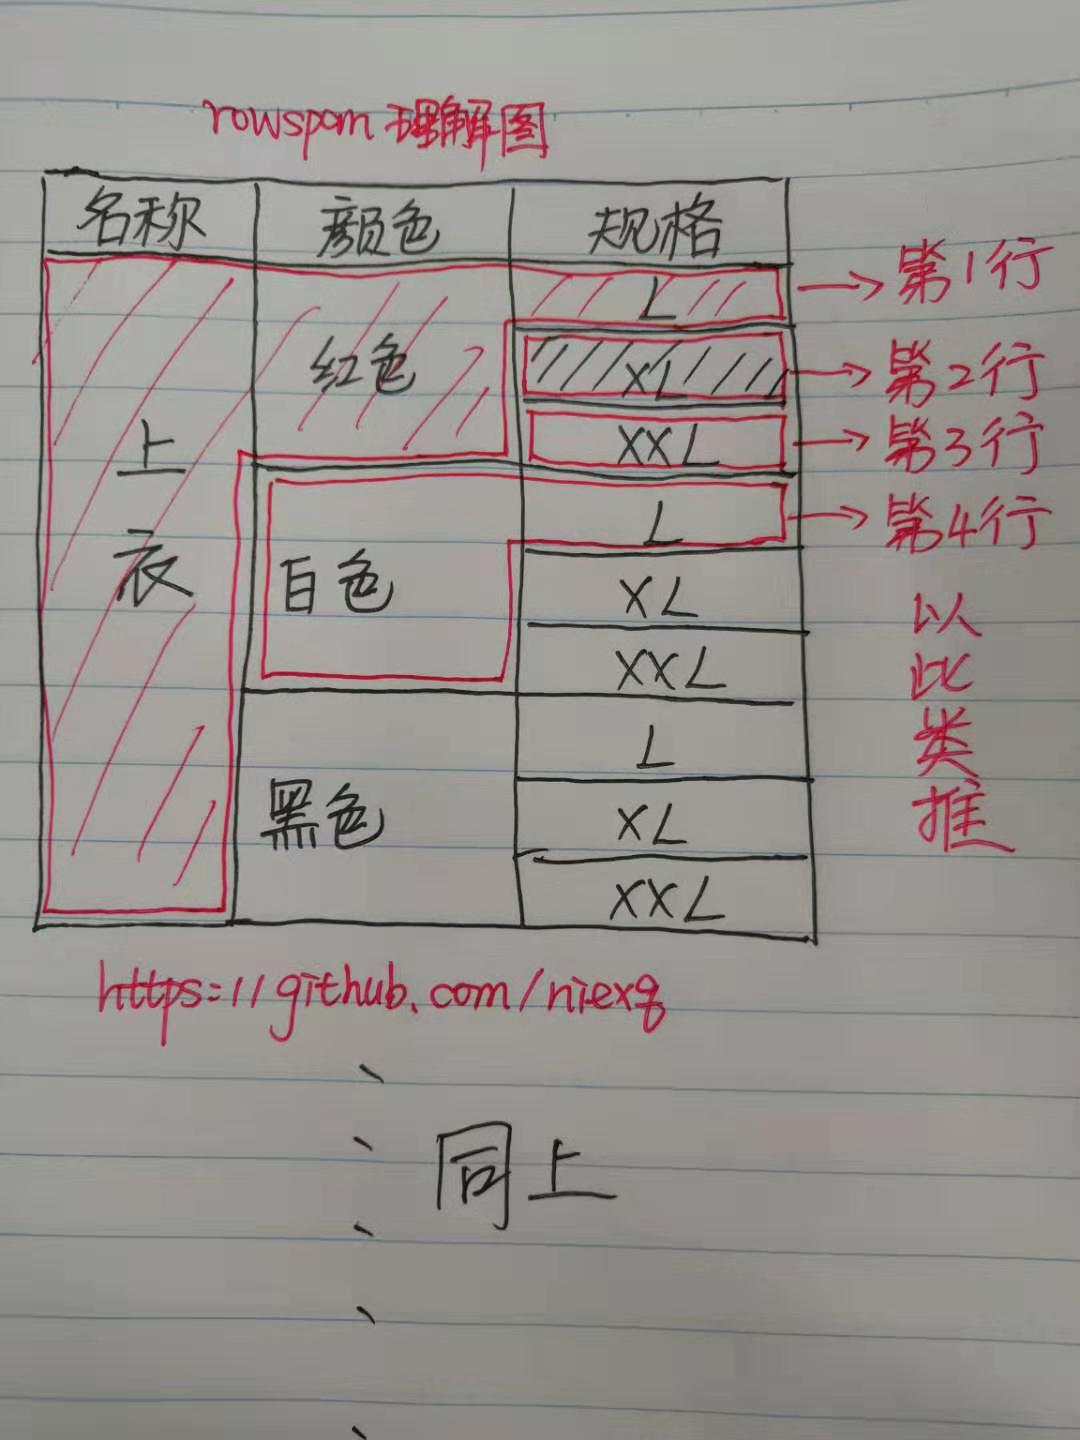 rowspan 理解图
名称 颜色 规格
上衣 红色 L → 第1行
XL → 第2行
XXL → 第3行
白色 L → 第4行
XL
XXL
以此类推
黑色 L
XL
XXL
https://github.com/niexq
同上